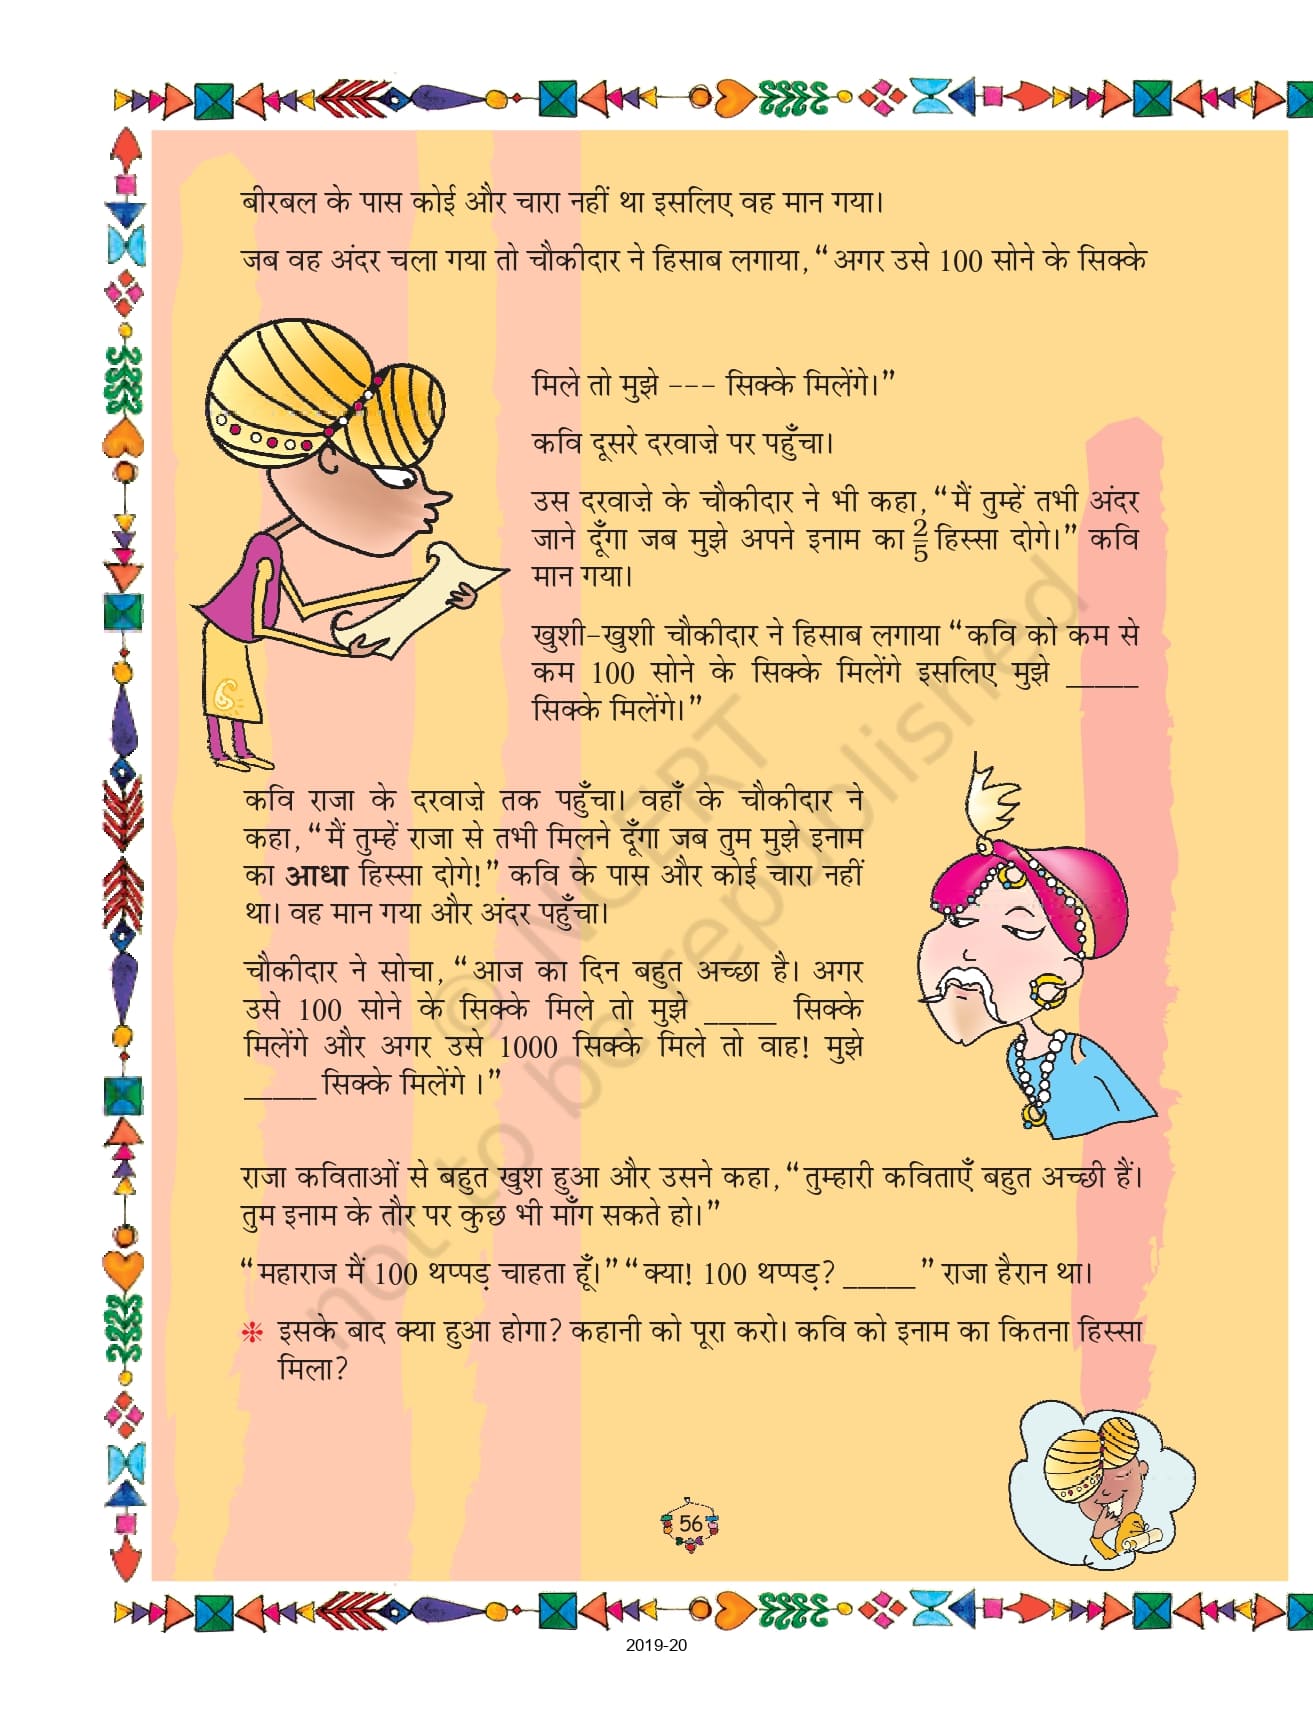 बीरबल के पास कोई और चारा नहीं था इसलिए वह मान गया।
जब वह अंदर चला गया तो चौकीदार ने हिसाब लगाया, “अगर उसे 100 सोने के सिक्के
मिले तो मुझे --- सिक्के मिलेंगे।”
कवि दूसरे दरवाज़े पर पहुँचा।
उस दरवाज़े के चौकीदार ने भी कहा, “मैं तुम्हें तभी अंदर
जाने दूँगा जब मुझे अपने इनाम का 2/5 हिस्सा दोगे।” कवि
मान गया।
खुशी-खुशी चौकीदार ने हिसाब लगाया “कवि को कम से
कम 100 सोने के सिक्के मिलेंगे इसलिए मुझे _____
सिक्के मिलेंगे।”
कवि राजा के दरवाज़े तक पहुँचा। वहाँ के चौकीदार ने
कहा, “मैं तुम्हें राजा से तभी मिलने दूँगा जब तुम मुझे इनाम
का आधा हिस्सा दोगे!” कवि के पास और कोई चारा नहीं
था। वह मान गया और अंदर पहुँचा।
चौकीदार ने सोचा, “आज का दिन बहुत अच्छा है। अगर
उसे 100 सोने के सिक्के मिले तो मुझे _____ सिक्के
मिलेंगे और अगर उसे 1000 सिक्के मिले तो वाह! मुझे
_____ सिक्के मिलेंगे ।”
राजा कविताओं से बहुत खुश हुआ और उसने कहा, “तुम्हारी कविताएँ बहुत अच्छी हैं।
तुम इनाम के तौर पर कुछ भी माँग सकते हो।”
“महाराज मैं 100 थप्पड़ चाहता हूँ।” “क्या! 100 थप्पड़? _____ ” राजा हैरान था।
❉ इसके बाद क्या हुआ होगा? कहानी को पूरा करो। कवि को इनाम का कितना हिस्सा
मिला?
© NCERT
not to be republished
56
2019-20